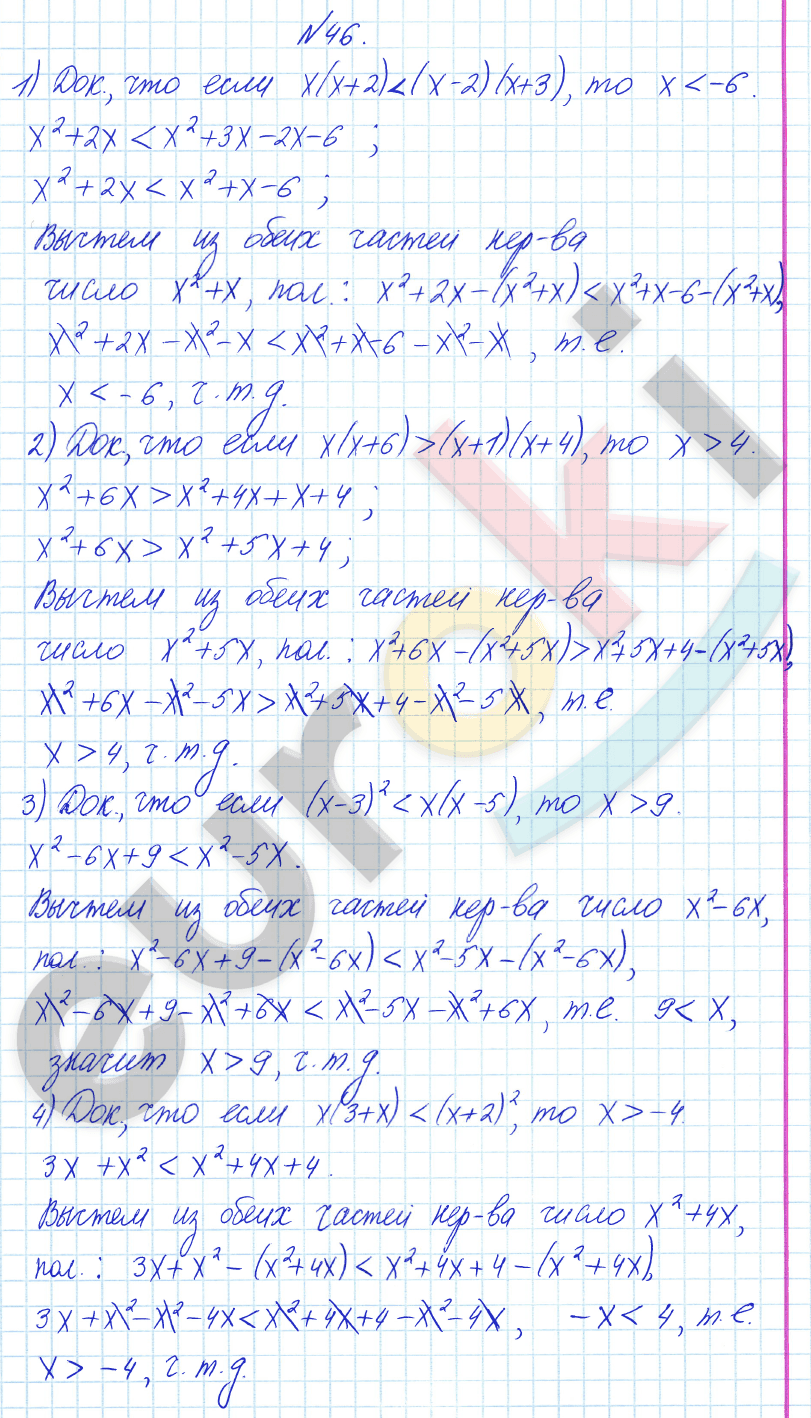 №46.
1) Док., что если x(x+2)<(x-2)(x+3), то x<-6.
x²+2x<x²+3x-2x-6 ;
x²+2x<x²+x-6 ;
Вычтем из обеих частей нер-ва
число x²+x, пол.: x²+2x-(x²+x)<x²+x-6-(x²+x),
x²+2x-x²-x<x²+x-6-x²-x, т.е.
x<-6, ч.т.д.
2) Док., что если x(x+6)>(x+1)(x+4), то x>4.
x²+6x>x²+4x+x+4 ;
x²+6x>x²+5x+4 ;
Вычтем из обеих частей нер-ва
число x²+5x, пол.: x²+6x-(x²+5x)>x²+5x+4-(x²+5x),
x²+6x-x²-5x>x²+5x+4-x²-5x, т.е.
x>4, ч.т.д.
3) Док., что если (x-3)²<x(x-5), то x>9.
x²-6x+9<x²-5x.
Вычтем из обеих частей нер-ва число x²-6x,
пол.: x²-6x+9-(x²-6x)<x²-5x-(x²-6x),
x²-6x+9-x²+6x<x²-5x-x²+6x, т.е. 9<x,
значит x>9, ч.т.д.
4) Док., что если x(3+x)<(x+2)², то x>-4.
3x+x²<x²+4x+4.
Вычтем из обеих частей нер-ва число x²+4x,
пол.: 3x+x²-(x²+4x)<x²+4x+4-(x²+4x),
3x+x²-x²-4x<x²+4x+4-x²-4x, -x<4, т.е.
x>-4, ч.т.д.
euroki